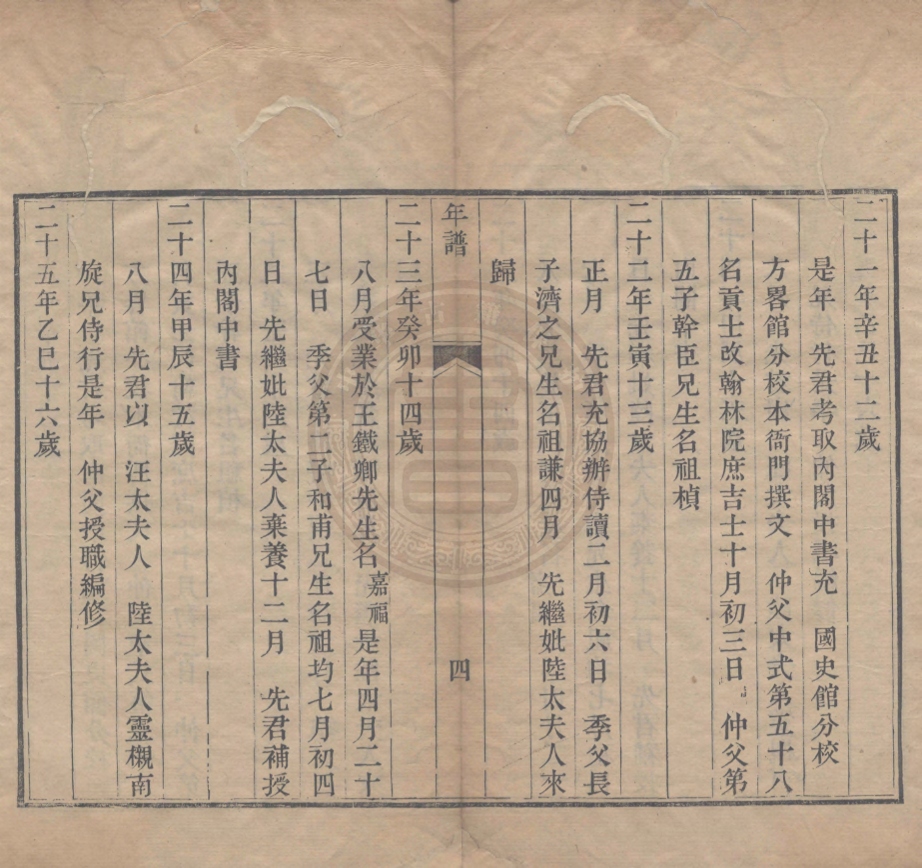 二十一年辛丑十二歲
是年　先君考取內閣中書充　國史館分校
方畧館分校本衙門撰文　仲父中式第五十八
名貢士改翰林院庶吉士十月初三日　仲父第
五子幹臣兄生名祖楨
二十二年壬寅十三歲
正月　先君充協辦侍讀二月初六日　季父長
子濟之兄生名祖謙四月　先繼妣陸太夫人來
歸
年譜　四
二十三年癸卯十四歲
八月受業於王鐵卿先生名嘉福是年四月二十
七日　季父第二子和甫兄生名祖均七月初四
日　先繼妣陸太夫人棄養十二月　先君補授
內閣中書
二十四年甲辰十五歲
八月　先君以　汪太夫人　陸太夫人靈櫬南
旋兄侍行是年　仲父授職編修
二十五年乙巳十六歲